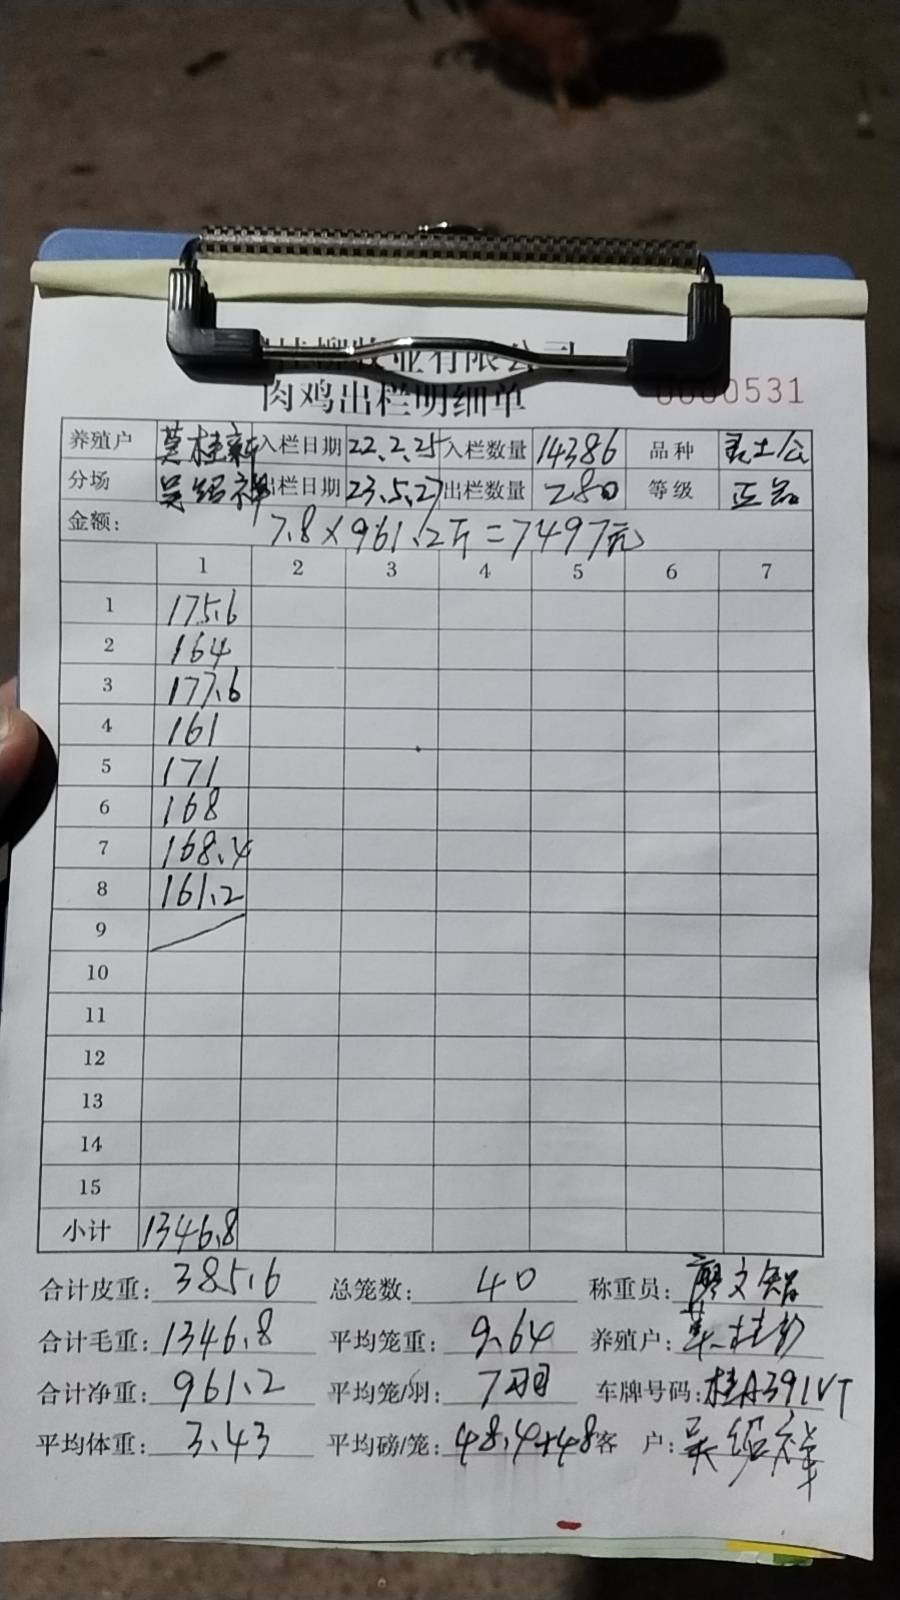 桂柳牧业有限公司
肉鸡出栏明细单
0000531
养殖户 莫桂新 入栏日期 22.2.25 入栏数量 14386 品种 土公
分场 吴绍祥 出栏日期 23.5.27 出栏数量 280 等级 正品
金额: 7.8×961.2斤=7497元
1 2 3 4 5 6 7
1 175.6
2 164
3 177.6
4 161
5 171
6 168
7 168.4
8 161.2
9
10
11
12
13
14
15
小计 1346.8
合计皮重: 385.6 总笼数: 40 称重员: 廖文智
合计毛重: 1346.8 平均笼重: 9.64 养殖户: 莫桂
合计净重: 961.2 平均笼/羽: 7羽 车牌号码: 桂A391VT
平均体重: 3.43 平均磅/笼: 48.4+48 客户: 吴绍祥